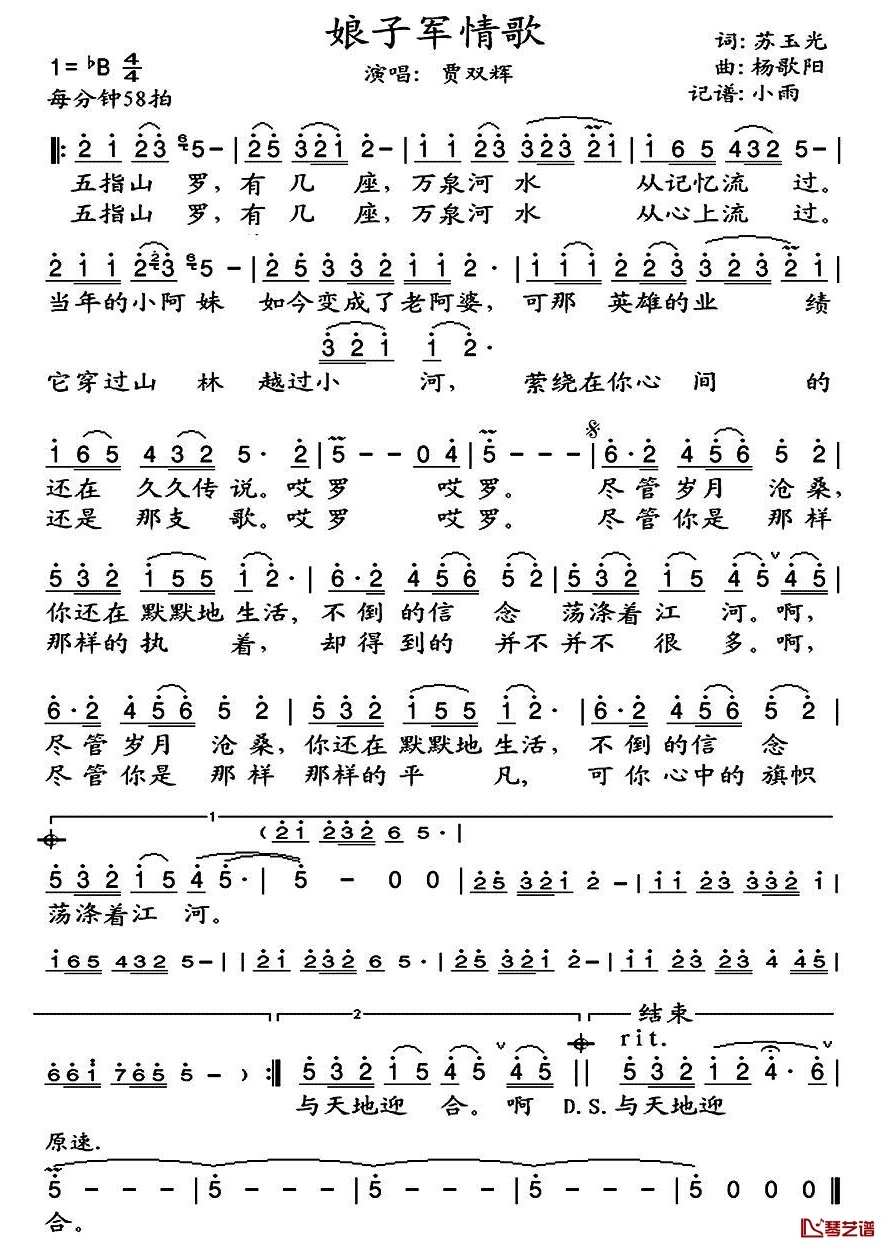 娘子军情歌
1=♭B 4/4
每分钟58拍
演唱: 贾双辉
词: 苏玉光
曲: 杨歌阳
记谱: 小雨
五指山 罗, 有 几 座, 万泉河 水 从记忆流 过。
五指山 罗, 有 几 座, 万泉河 水 从心上流 过。
当年的小阿 妹 如今变成了老阿婆, 可那 英雄的业 绩
3 2 1 1 2·
它穿过山 林 越过小 河, 萦绕在你心 间 的
1 6 5 4 3 2 5· 2 | 5 - - 0 4 | 5 - - - | 6·2 4 5 6 5 2 |
还在 久久传说。哎罗 哎罗。 尽管岁月 沧桑,
还是 那支 歌。哎罗 哎罗。 尽管你是 那样
5 3 2 1 5 5 1 2· | 6·2 4 5 6 5 2 | 5 3 2 1 5 4 5 V 4 5 |
你还在默默地生活, 不倒的信 念 荡涤着江 河。啊,
那样的执 着, 却得到的 并不并不 很 多。啊,
6·2 4 5 6 5 2 | 5 3 2 1 5 5 1 2· | 6·2 4 5 6 5 2 |
尽管岁月 沧桑,你还在默默地生活, 不倒的信 念
尽管你是 那样 那样的平 凡, 可你心中的旗帜
1
(2 1 2 3 2 6 5·|
5 3 2 1 5 4 5· | 5 - 0 0 | 2 5 3 2 1 2 - | 1 1 2 3 3 2 3 2 1 |
荡涤着江 河。
1 6 5 4 3 2 5 - | 2 1 2 3 2 6 5· | 2 5 3 2 1 2 - | 1 1 2 3 2 3 4 4 5 |
2 结束
rit.
6 6 1 7 6 5 5 - ) :‖ 5 3 2 1 5 4 5 V 4 5 ‖ 5 3 2 1 2 4· 6 V
与天地迎 合。啊 D.S.与天地迎
原速.
5 - - - | 5 - - - | 5 - - - | 5 - - - | 5 0 0 0 ‖
合。
琴艺谱